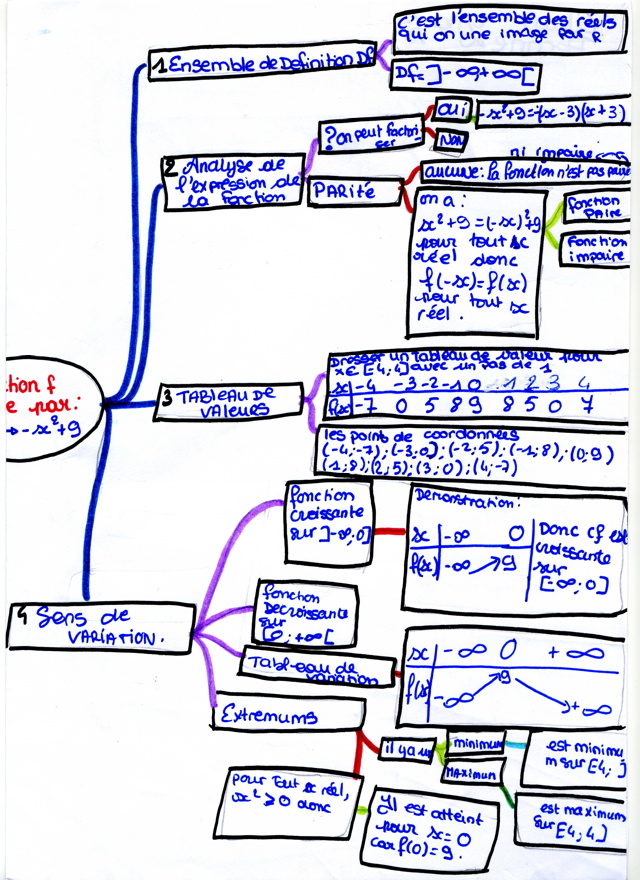 C'est l'ensemble des réels
qui on une image par R
1 Ensemble de Definition Df
Df=]-∞,+∞[
? on peut factori-
ser
oui
-x²+9=-(x-3)(x+3)
Non
2 Analyse de
l'expression de
la fonction
PARité
ni impaire
aucuse: la fonction n'est pas paire
on a:
x²+9=(-x)²+9
pour tout x
réel donc
f(-x)=f(x)
pour tout x
réel.
fonction
PAIRE
Fonction
impaire
ction f
e par:
→-x²+9
3 TABLEAU DE
VALEURS
Dresser un tableau de valeur pour
x∈[-4;4] avec un pas de 1
x -4 -3 -2 -1 0 1 2 3 4
f(x) -7 0 5 8 9 8 5 0 7
les point de coordonnées
(-4;-7);(-3;0);(-2;5);(-1;8);(0;9)
(1;8)(2;5);(3;0);(4;-7)
4 Sens de
VARIATION.
fonction
croissante
sur ]-∞;0]
Demonstration:
x -∞ 0
f(x) -∞ ↗ 9
Donc cf est
croissante
sur
[∞;0]
fonction
Decroissante
sur
[0;+∞[
Tableau de
variation
x -∞ 0 +∞
f(x) -∞ ↗ 9 ↘ +∞
Extremums
il ya un
minimum
est minimu
m sur [4; ]
MAXimum
est maximum
sur [4;4]
pour tout x réel,
x²⩾0 donc
Il est atteint
pour x=0
car f(0)=9.